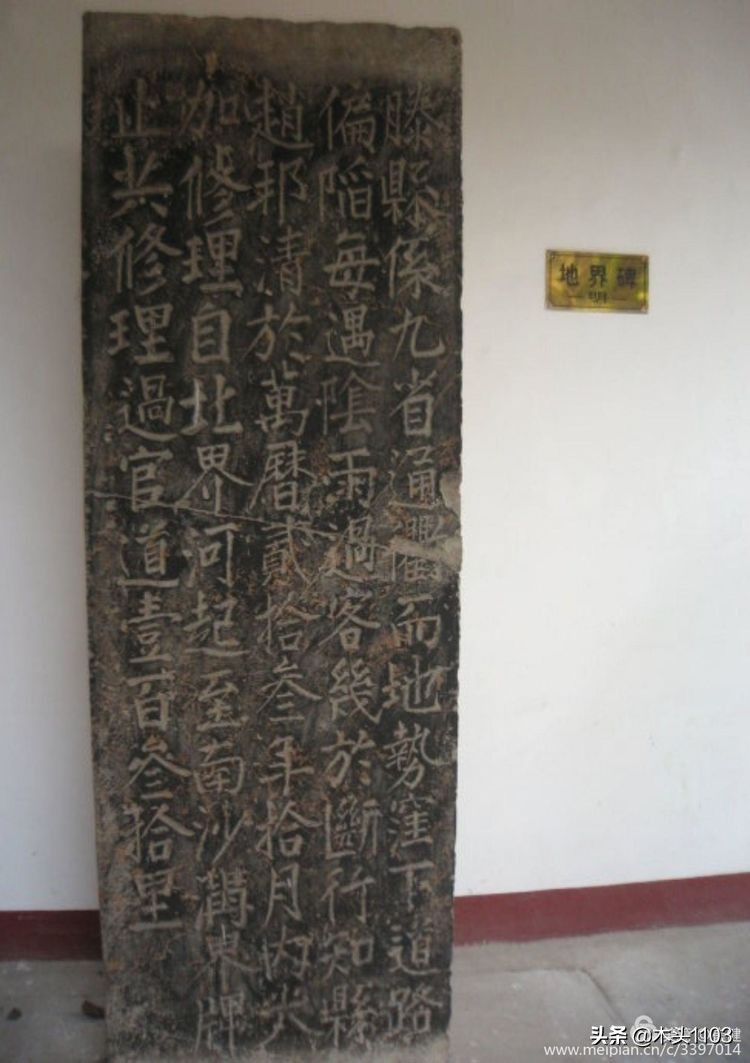 滕縣係九省通衢而地勢窪下道路
偏陷每遇陰雨過客幾於斷行知縣
趙邦清於萬曆貳拾叁年拾月內大
加修理自北界河起至南沙溝東牌
止共修理過官道壹百叁拾里
地界碑
明
头条 @木头1103
www.meipian.cn/c/3397014